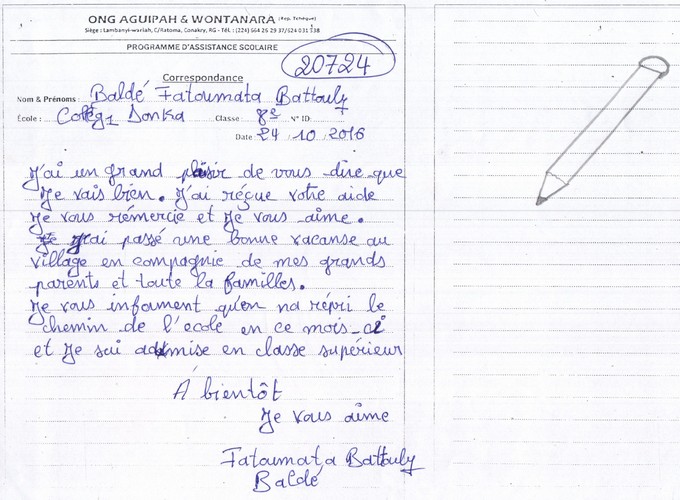 ONG AGUIPAH & WONTANARA (Rép. Tchèque)
Siège : Lambanyi-wariah, C/Ratoma, Conakry, RG - Tél. : (224) 664 25 29 37/624 031 538
PROGRAMME D'ASSISTANCE SCOLAIRE
20724
Correspondance
Nom & Prénoms : Baldé Fatoumata Battouly
École : Donka Classe : 8e N° ID:
Date : 24 / 10 / 2016
J'ai un grand plaisir de vous dire que
Je vais bien. J'ai réçue votre aide
Je vous rémercie et Je vous aime.
J'ai passé une bonne vacanse au
village en compagnie de mes grands
parents et toute la familles.
Je vous infoument qu'on na répri le
chemin de l'ecole en ce mois-ci
et Je sui admise en classe supérieur
À bientôt
Je vous aime
Fatoumata Battouly
Baldé